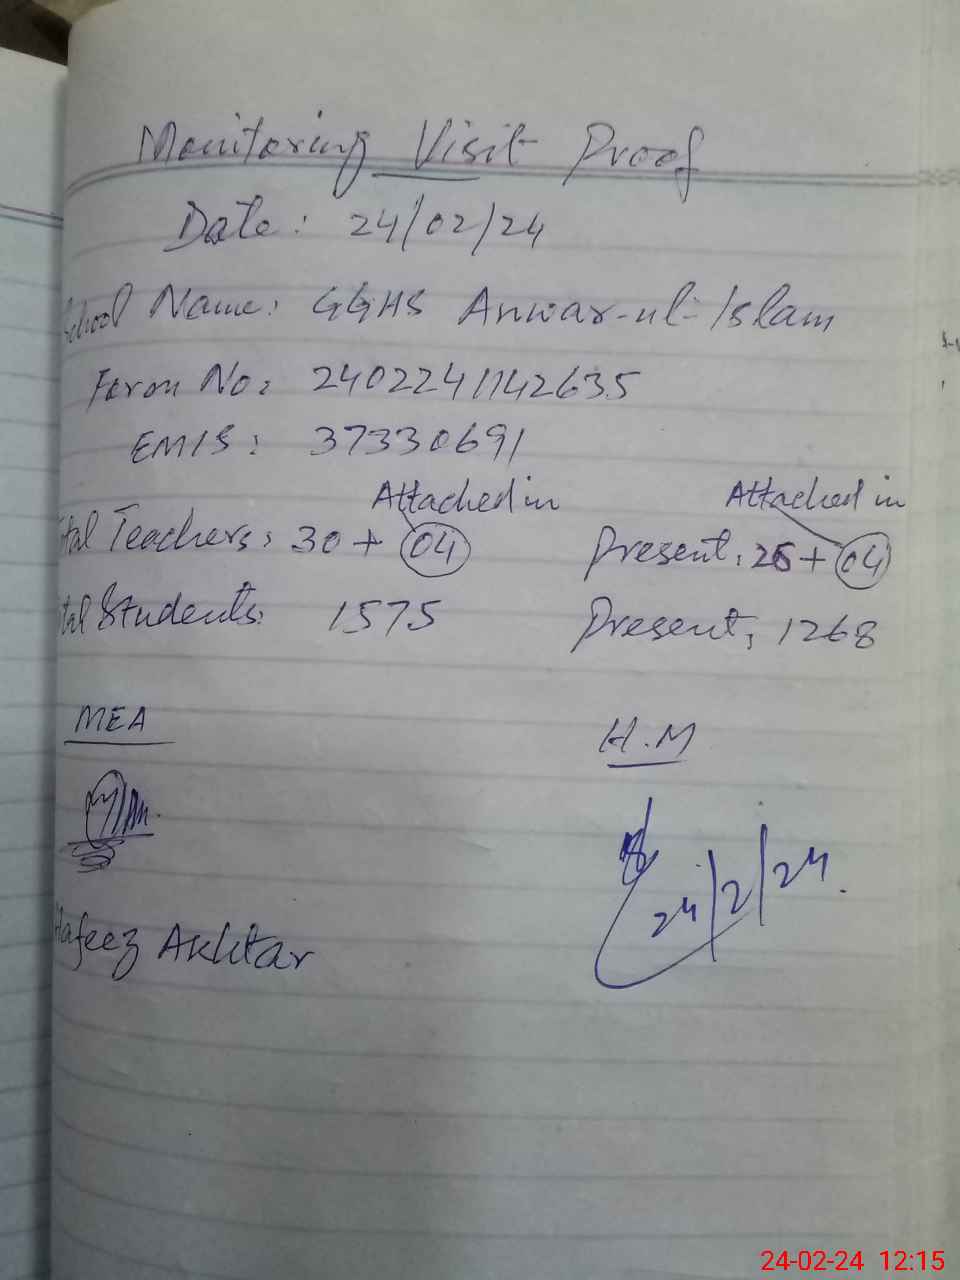 Monitoring Visit Proof
Date: 24/02/24
School Name: GGHS Anwar-ul-Islam
Form No: 2402241142635
EMIS: 37330691
Attached in Attached in
Total Teachers: 30 + 04 Present: 26 + 04
Total Students: 1575 Present: 1268
MEA H.M
24/2/24.
Hafeez Akhtar
24-02-24 12:15